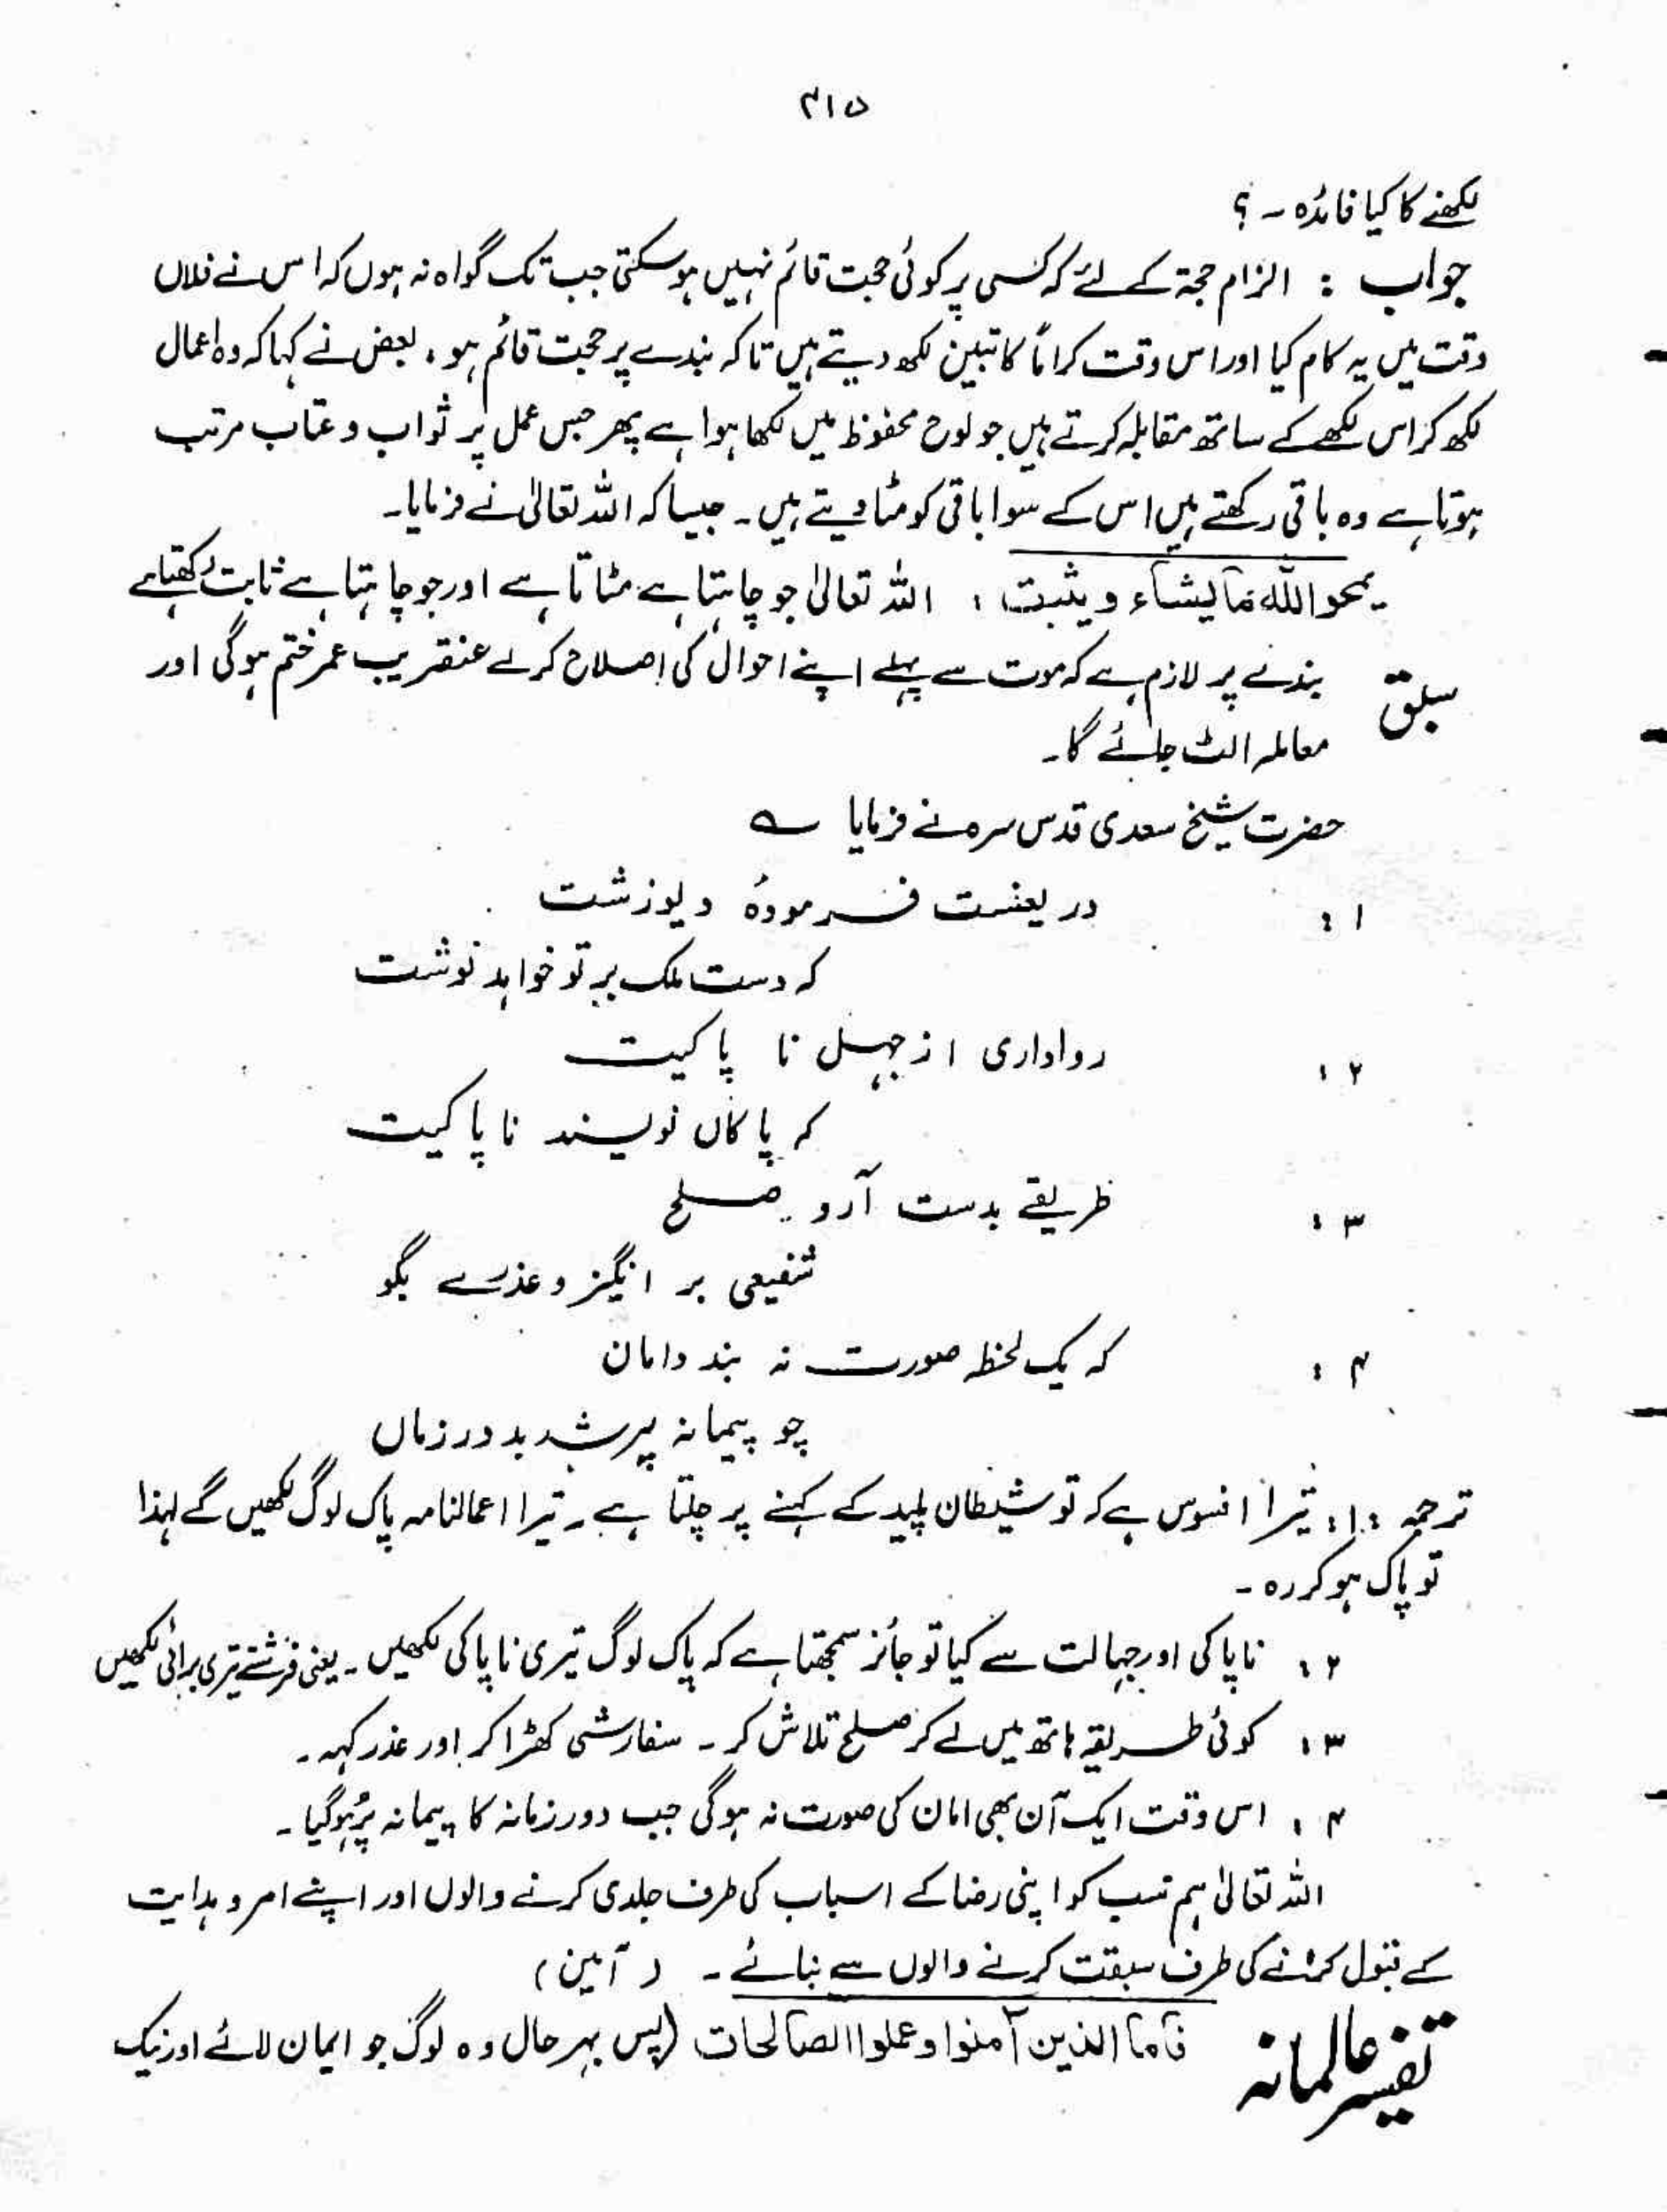 ۳۱۵
لکھنے کا کیا فائدہ ۔ ؟
جواب : الزام حجۃ کے لئے کہ کسی پر کوئی حجت قائم نہیں ہو سکتی جب تک گواہ نہ ہوں کہ اس نے فلاں
وقت میں یہ کام کیا اور اس وقت کراماً کاتبین لکھ دیتے ہیں تاکہ بندے پر حجت قائم ہو ۔ بعض نے کہا کہ وہ اعمال
لکھ کر اس لکھے کے ساتھ مقابلہ کرتے ہیں جو لوح محفوظ میں لکھا ہوا ہے پھر جس عمل پر ثواب و عتاب مرتب
ہوتا ہے وہ باقی رکھتے ہیں اس کے سوا باقی کو مٹا دیتے ہیں ۔ جیسا کہ اللہ تعالیٰ نے فرمایا ۔
یمحو اللّٰہ مَا یشآء و یثبت ، اللہ تعالیٰ جو چاہتا ہے مٹاتا ہے اور جو چاہتا ہے ثابت رکھتا ہے
سبق بندے پر لازم ہے کہ موت سے پہلے اپنے احوال کی اصلاح کرلے عنقریب عمر ختم ہوگی اور
معاملہ الٹ جائے گا ۔
حضرت شیخ سعدی قدس سرہ نے فرمایا ؎
۱ : دریغست فرمودۂ دیو زشت
کہ دست ملک بر تو خواہد نوشت
۲ : رواداری از جہل نا پاکیت
کہ پاکاں نویسند نا پاکیت
۳ : طریقے بدست آرو صلح
شفیعی بر انگیز و عذرے بگو
۴ : کہ یک لحظہ صورت نہ بند دامان
چو پیمانہ پرشد بدور زماں
ترجمہ :۱: تیرا افسوس ہے کہ تو شیطان پلید کے کہنے پر چلتا ہے ۔ تیرا اعمالنامہ پاک لوگ لکھیں گے لہذا
تو پاک ہو کر رہ ۔
۲ : ناپاکی اور جہالت سے کیا تو جائز سمجھتا ہے کہ پاک لوگ تیری ناپاکی لکھیں ۔ یعنی فرشتے تیری برائی لکھیں
۳ : کوئی طریقہ ہاتھ میں لے کر صلح تلاش کر ۔ سفارشی کھڑا کر اور عذر کہہ ۔
۴ : اس وقت ایک آن بھی امان کی صورت نہ ہوگی جب دور زمانہ کا پیمانہ پُر ہوگیا ۔
اللہ تعالیٰ ہم سب کو اپنی رضا کے اسباب کی طرف جلدی کرنے والوں اور اپنے امر و ہدایت
کے قبول کرنے کی طرف سبقت کرنے والوں سے بنائے ۔ ( آمین )
تفسیر عالمانہ فَاَمَا الذین آمنوا وعملوا الصَالحات (پس بہر حال وہ لوگ جو ایمان لائے اور نیک